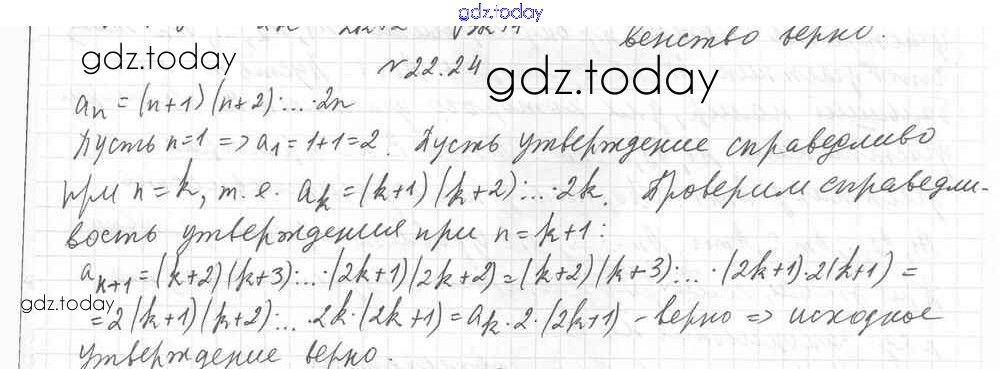 gdz.today
венство верно.
gdz.today
№22.24
gdz.today
aₙ = (n+1)(n+2)·...·2n
Пусть n=1 => a₁=1+1=2. Пусть утверждение справедливо
при n=k, т. е. aₖ=(k+1)(k+2)·...·2k. Проверим справедли-
вость утверждения при n=k+1:
aₖ₊₁=(k+2)(k+3)·...·(2k+1)(2k+2)=(k+2)(k+3)·...·(2k+1)·2(k+1)=
gdz.today
=2(k+1)(k+2)·...·2k·(2k+1)=aₖ·2·(2k+1) - верно => исходное
утверждение верно.